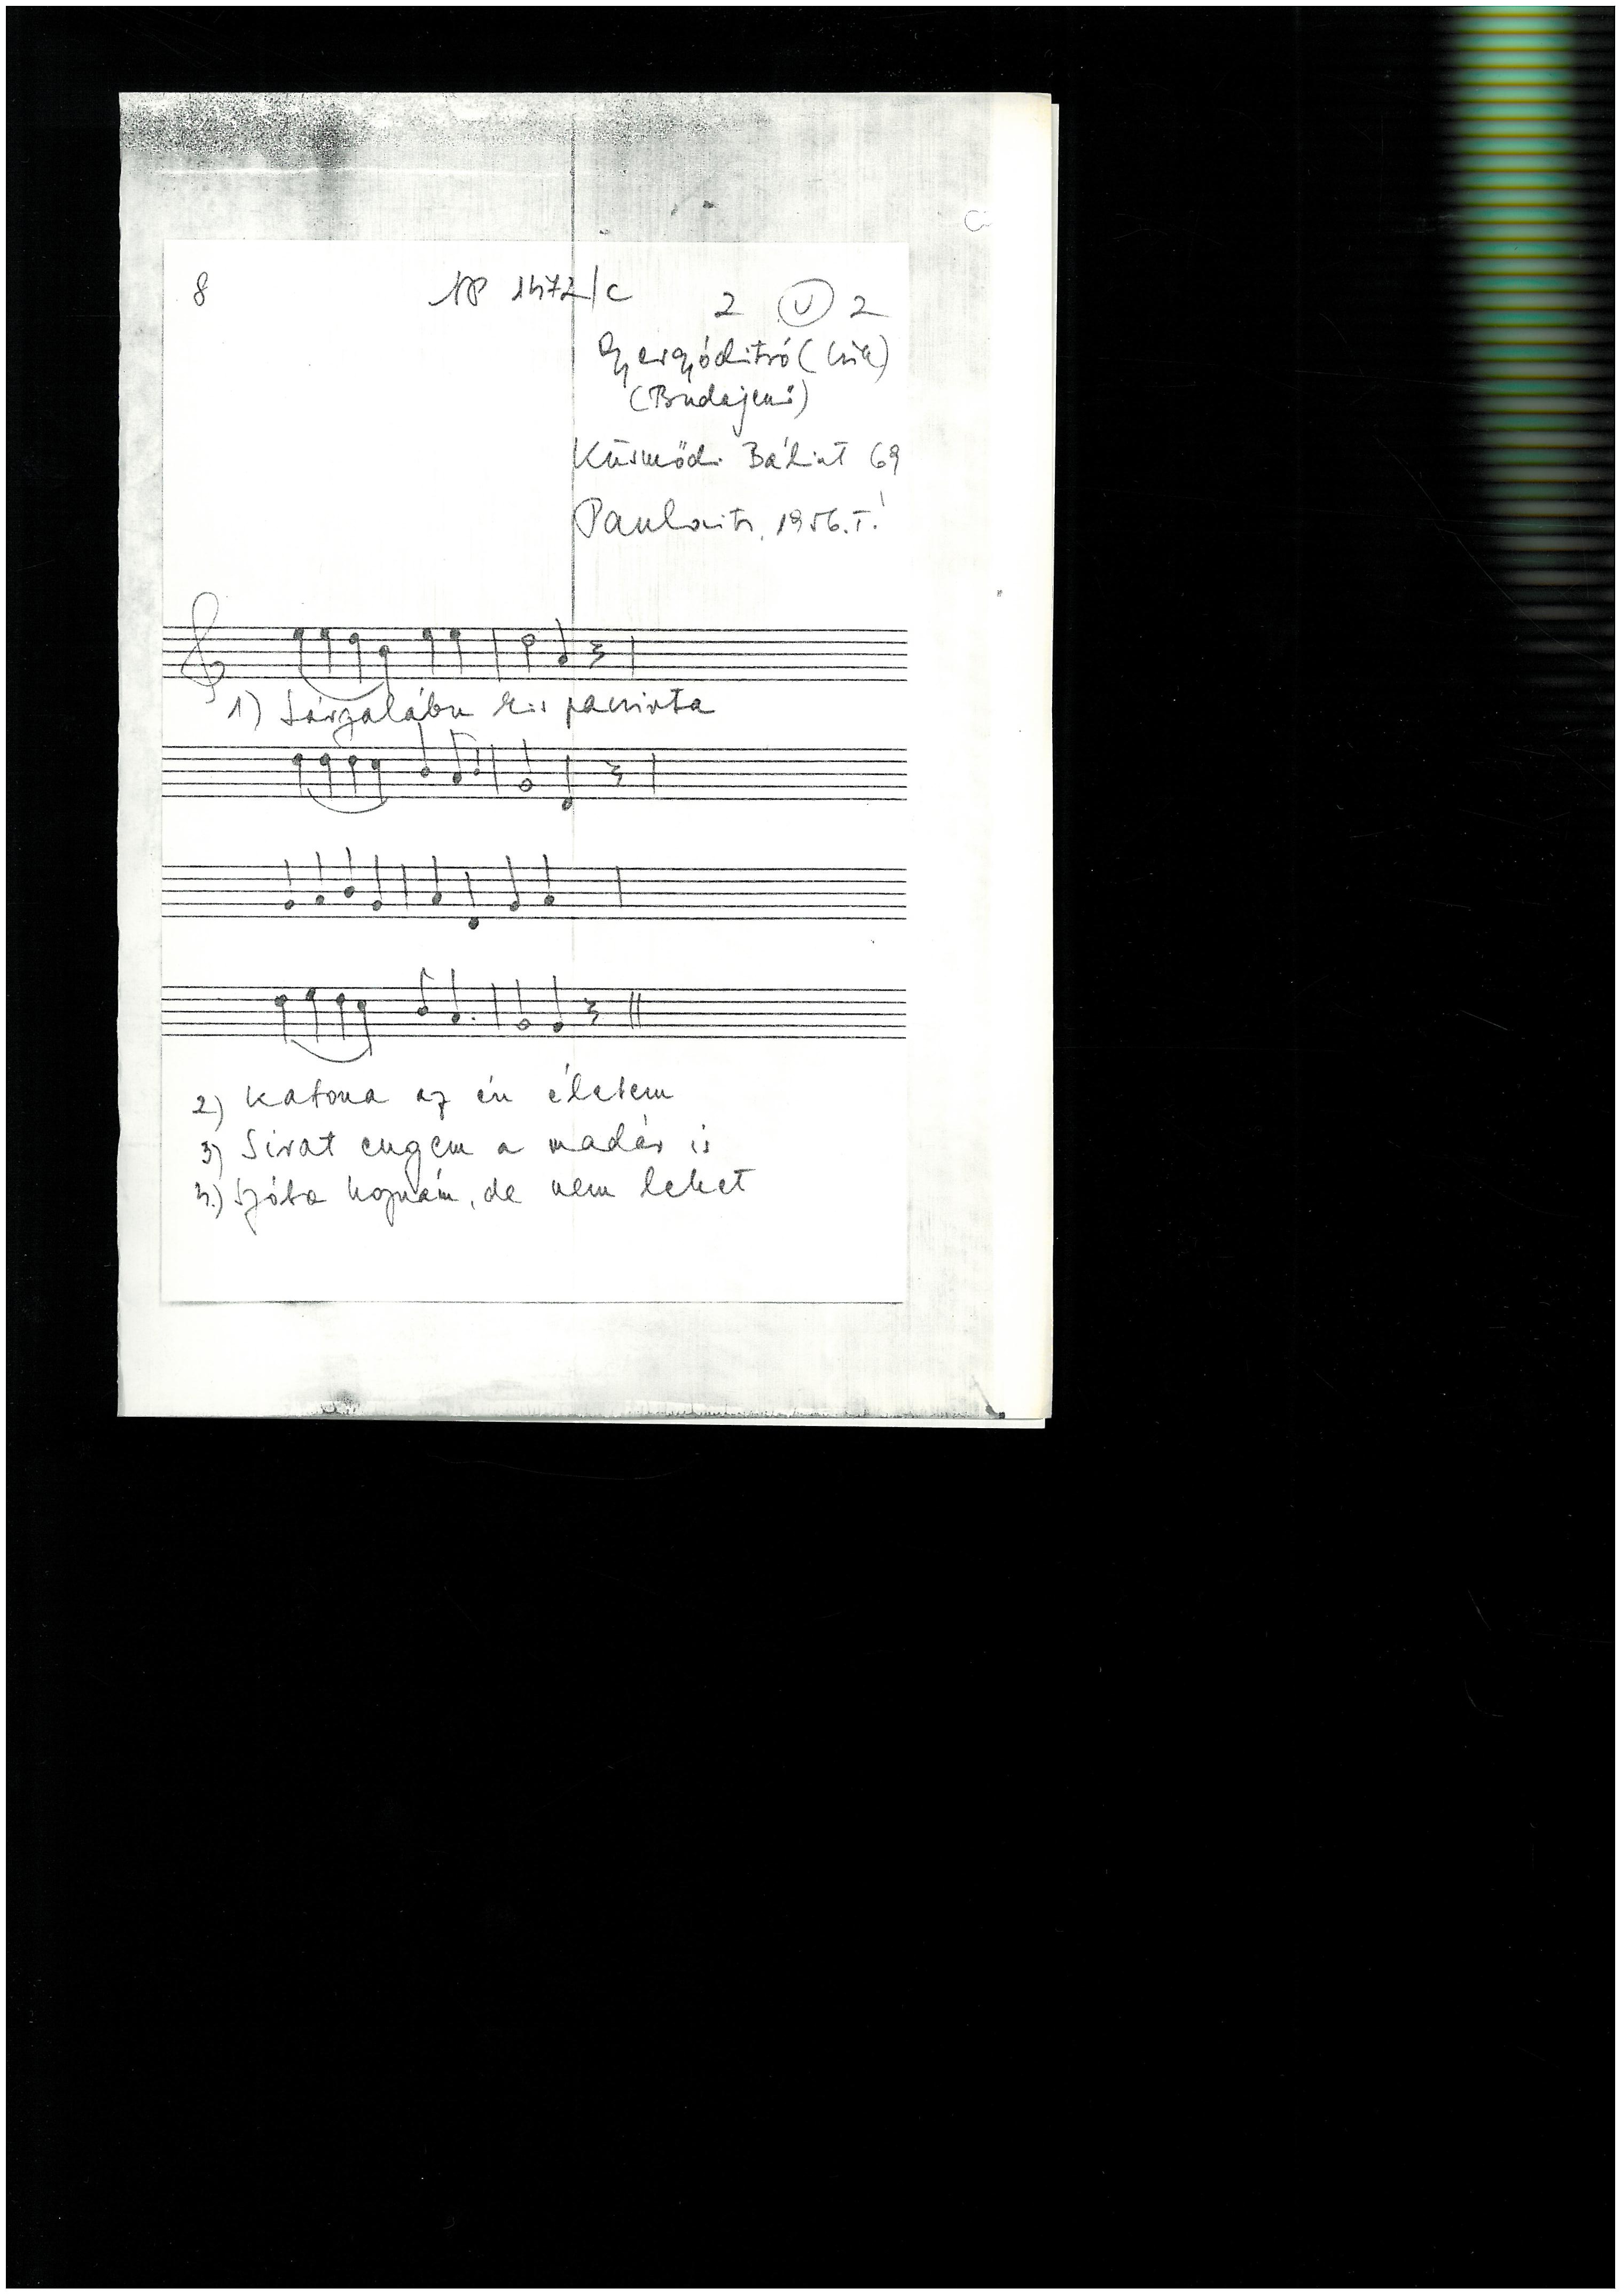 8
AP 1472/c
2 V 2
Gyergyóditró (Csík)
(Budajenő)
Küsmődi Bálint 69
Paulovits, 1956. I.
1) Sárgalábu kis pacsirta
2) Katona az én életem
3) Sirat engem a madár is
4.) Szóba hoznám, de nem lehet